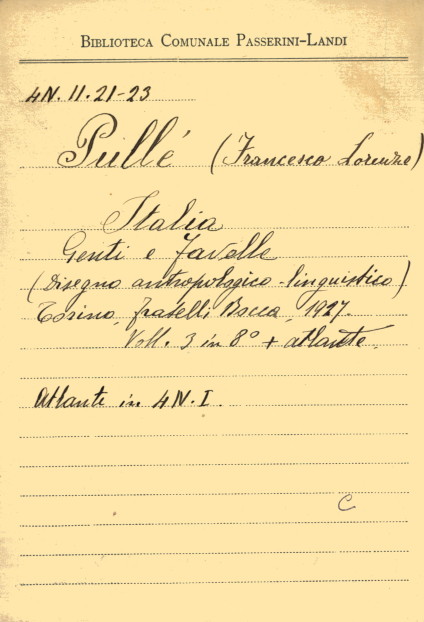 BIBLIOTECA COMUNALE PASSERINI-LANDI
4N. 11. 21-23
Pullé (Francesco Lorenzo)
Italia
Genti e favelle
(Disegno antropologico-linguistico)
Torino, fratelli Bocca, 1927.
Voll. 3 in 8° + atlante.
Atlante in 4N. I.
C